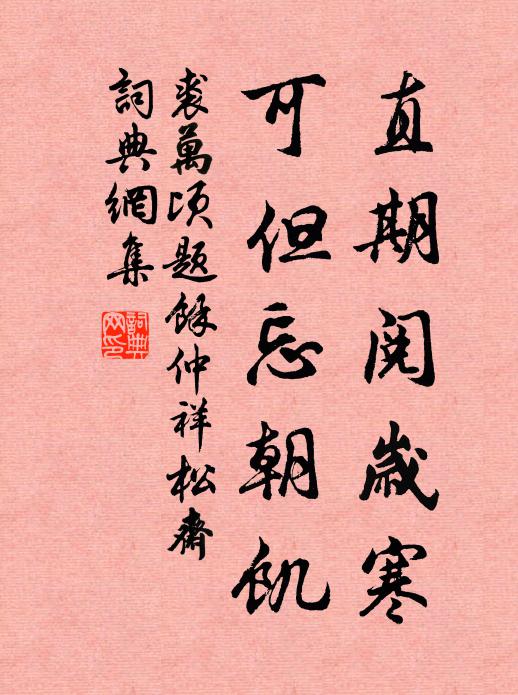 直期閱歲寒
可但忘朝飢
裘萬頃題餘仲祥松齋
詞典網集
詞典网印